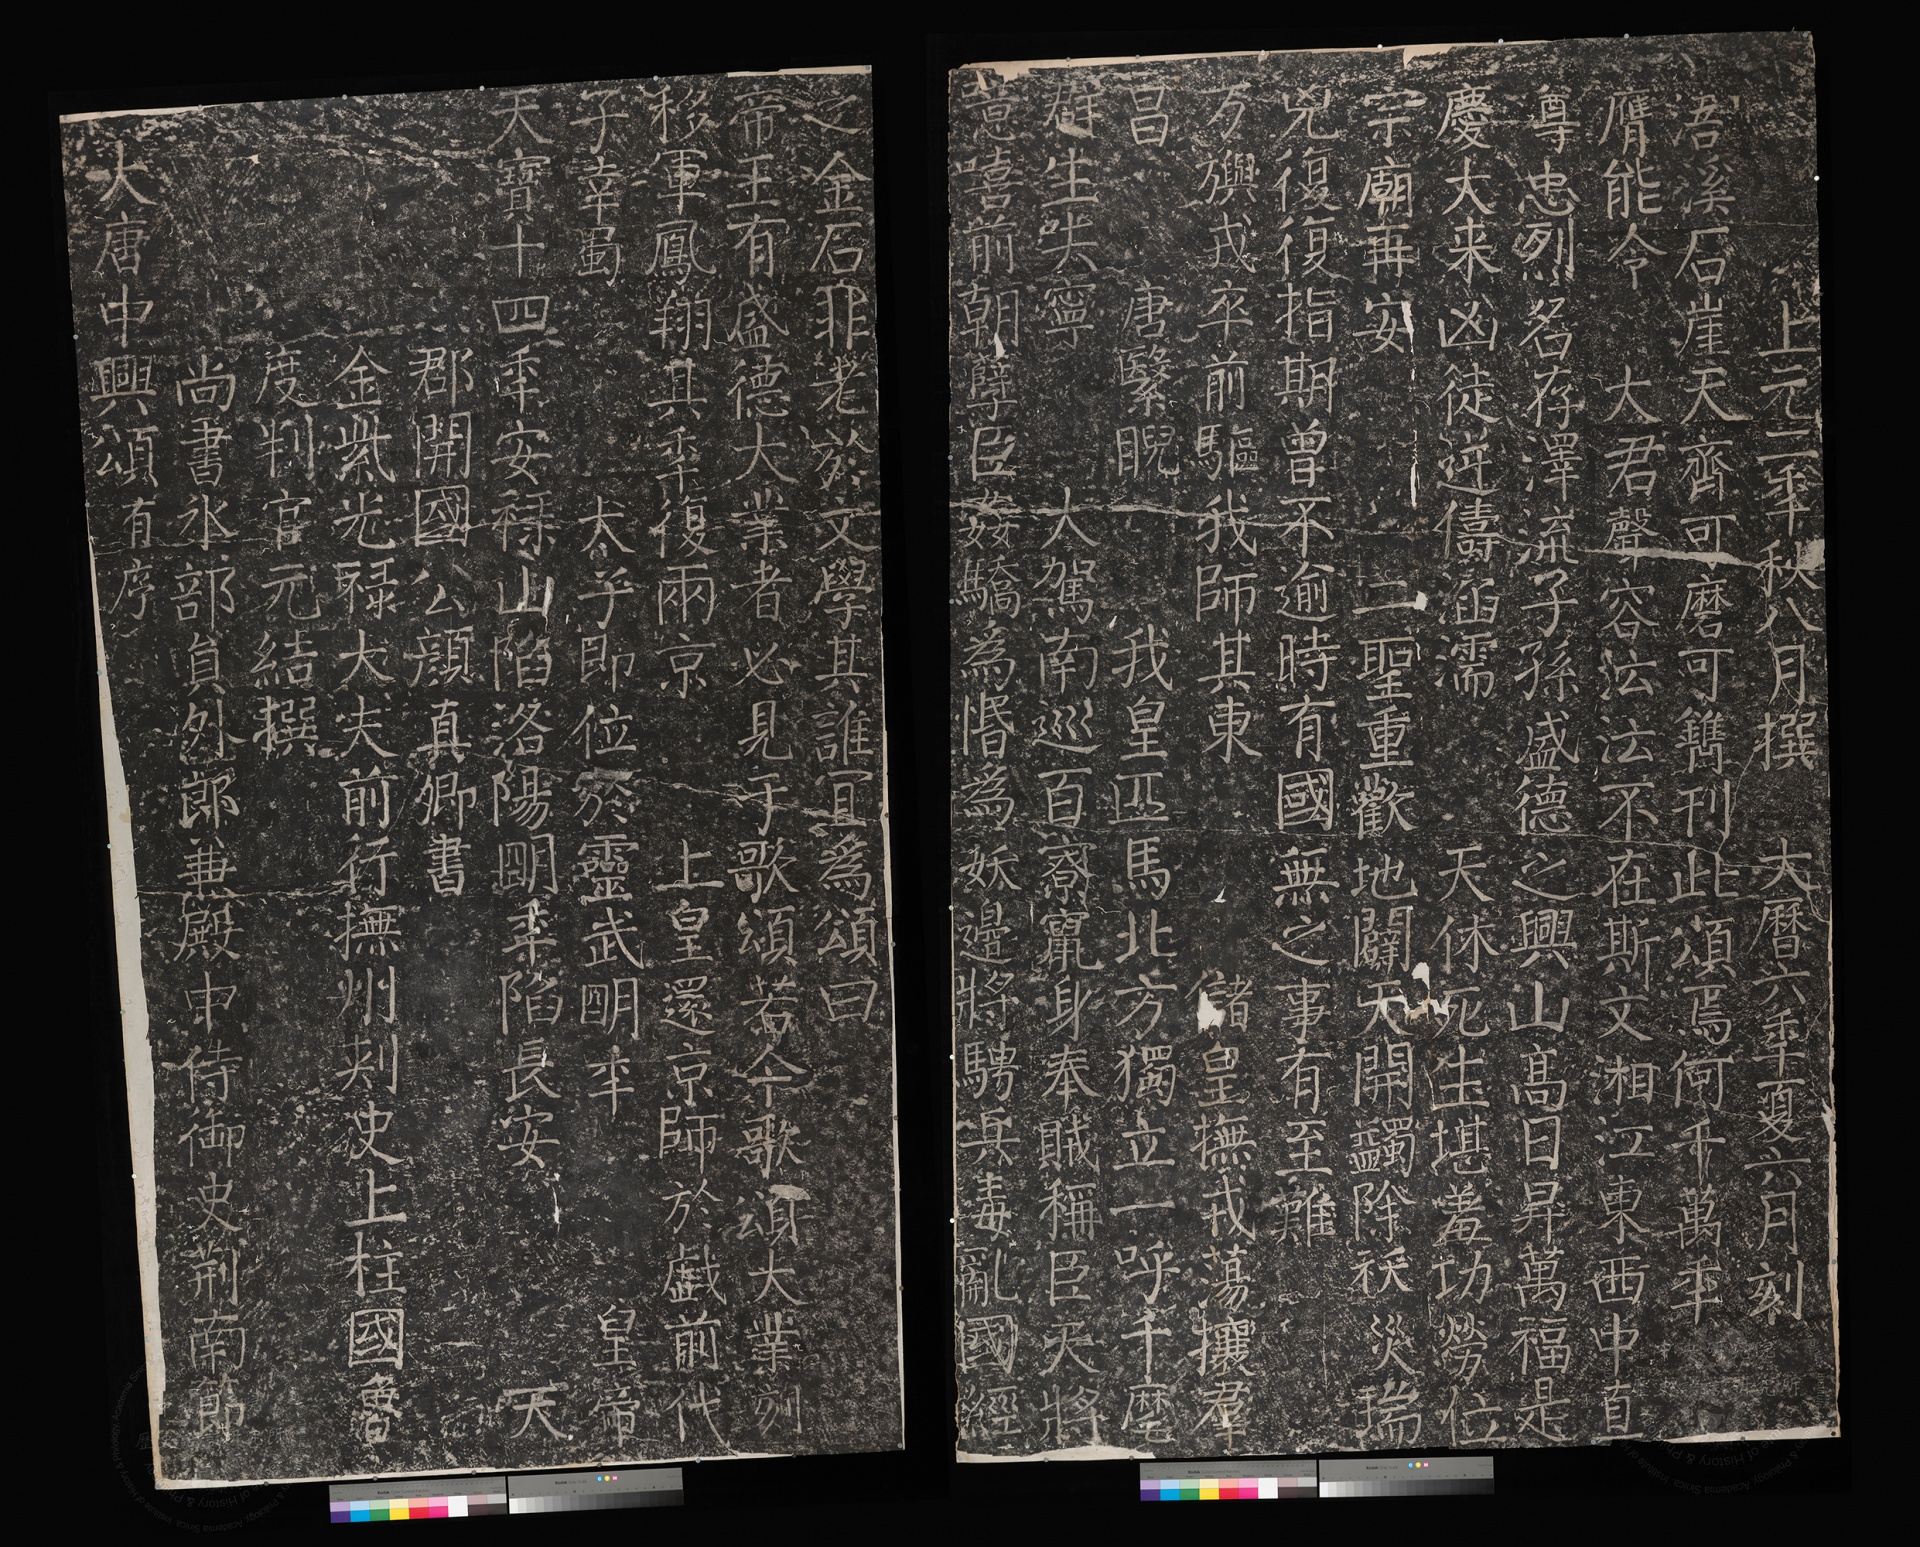 大唐中興頌有序
尚書水部員外郎兼殿中侍御史荊南節
度判官元結撰
金紫光祿大夫前行撫州刺史上柱國魯
郡開國公顏真卿書
天寶十四年安祿山陷洛陽明年陷長安 天
子幸蜀 太子即位於靈武明年 皇帝
移軍鳳翔其年復兩京 上皇還京師於戲前代
帝王有盛德大業者必見于歌頌若今歌頌大業刻
之金石非老於文學其誰宜為頌曰
噫嘻前朝孽臣姦驕為惛為妖邊將騁兵毒亂國經
群生失寧 大駕南巡百寮竄身奉賊稱臣天將
昌 唐繄睨 我皇匹馬北方獨立一呼千麾
万旟戎卒前驅我師其東 儲皇撫戎蕩攘羣
兇復復指期曾不逾時有國無之事有至難
宗廟再安 二聖重歡地闢天開蠲除袄災瑞
慶大来凶徒逆儔涵濡 天休死生堪羞功勞位
尊忠烈名存澤流子孫盛德之興山高日昇萬福是
膺能令 大君聲容沄沄不在斯文湘江東西中直
浯溪石崖天齊可磨可鐫刊此頌焉何千萬年
上元二年秋八月撰 大曆六年夏六月刻